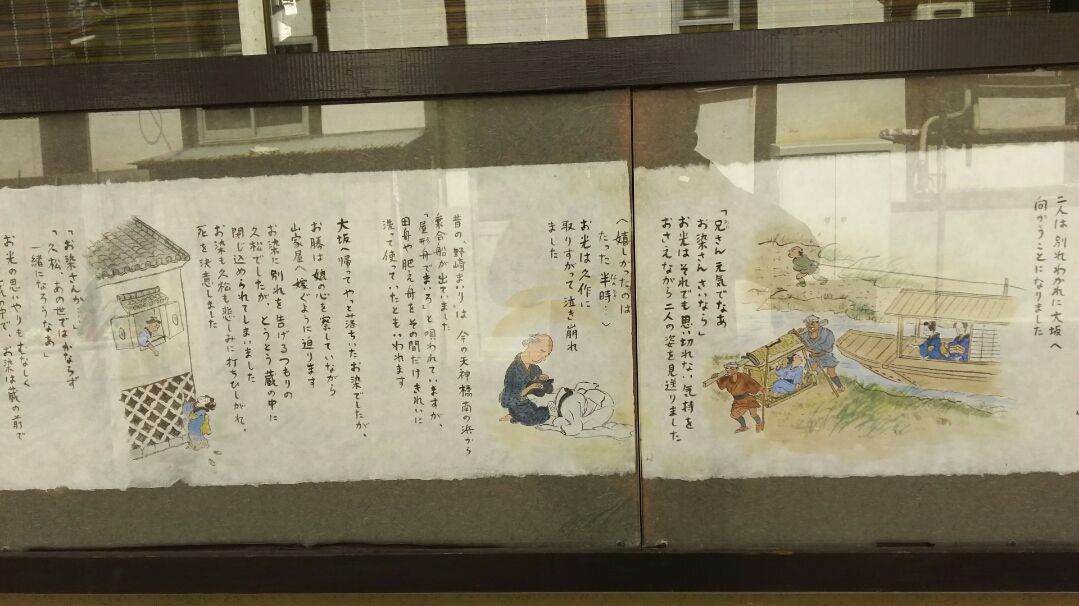 二人は別れわかれに大坂へ
向かうことになりました
「兄さん元気でなあ
お染さんさいなら」
お光はそれでも思い切れない気持を
おさえながら二人の姿を見送りました
〈嬉しかったのは
たった半時…〉
お光は久作に
取りすがって泣き崩れ
ました
昔の、野崎まいりは今の天神橋南の浜から
乗合船が出ていました
「屋形舟でまいろ」と唄われていますが、
田舟や肥え舟をその間だけきれいに
洗って使っていたともいわれます
大坂へ帰ってやっと落ちいたお染でしたが、
お勝は娘の心を察していながら
山家屋へ嫁ぐように迫ります
お染に別れを告げるつもりの
久松でしたが、とうとう蔵の中に
閉じ込められてしまいました
お染も久松も悲しみに打ちひしがれ、
死を決意しました
「お染さんか」
「久松、あの世ではかならず
一緒になろうなあ」
お光の思いやりもむなしく
お染は蔵の前で